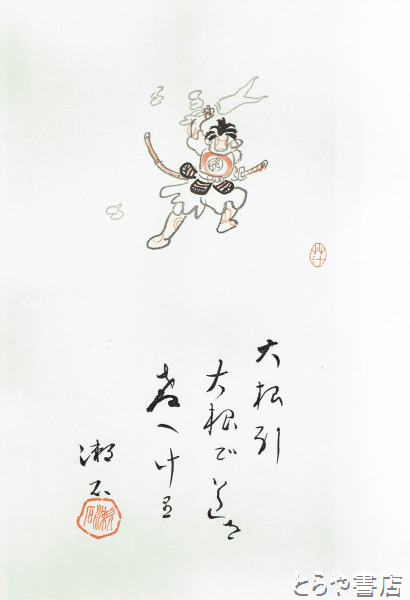 大根引
大根で道を
教へ計里
漱石
漱石
とらや書店